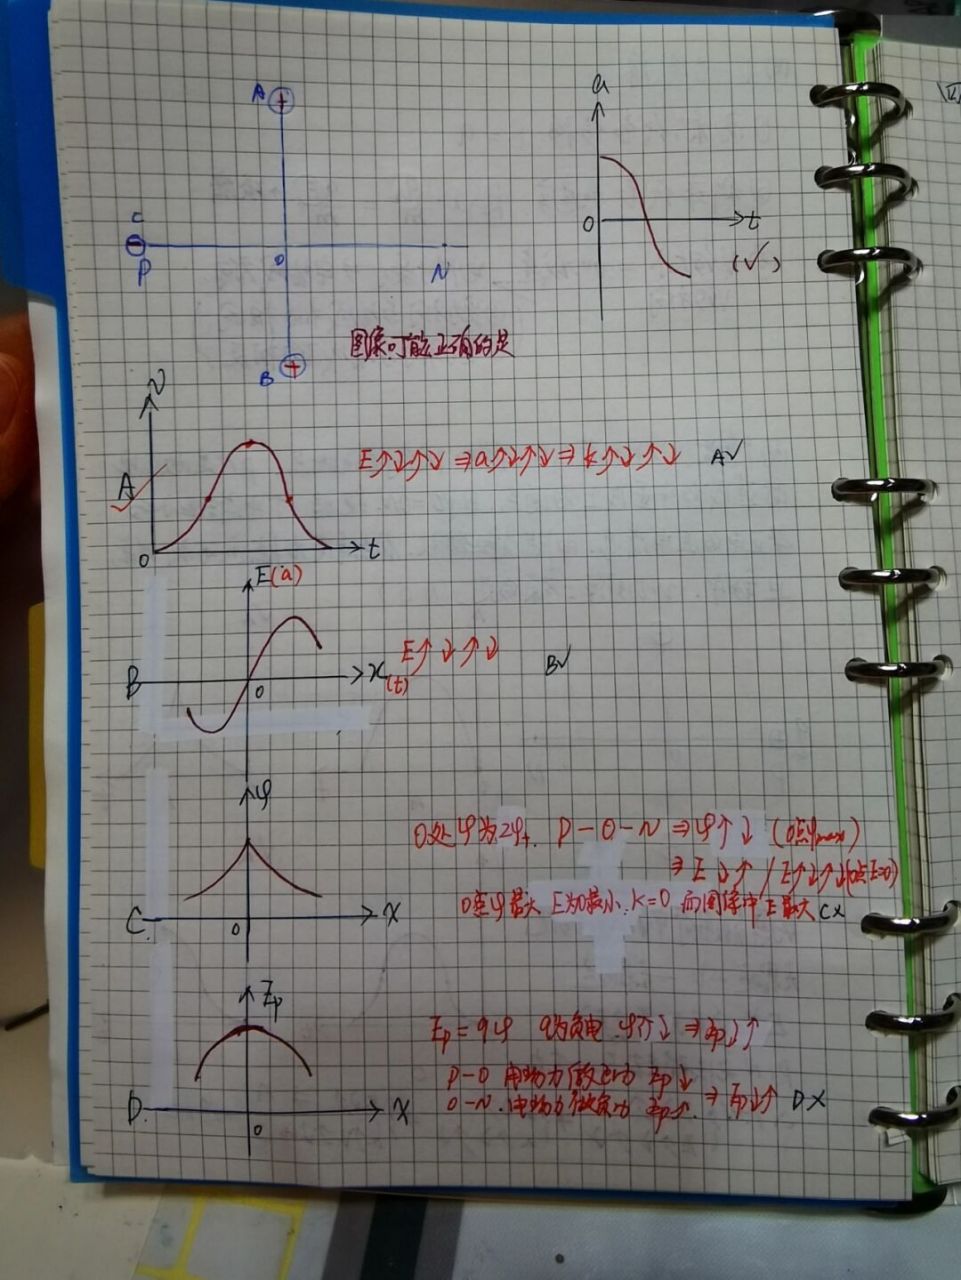 A +
a
C
P
0
N
0
t
(√)
B +
图像可能正确的是
v
A
E↑↓↑↓ ⇒a↑↓↑↓⇒k↑↓↑↓ A√
0
t
E(a)
E↑↓↑↓ B√
B
0
x(t)
φ
O处φ为2φ+. P-O-N ⇒φ↑↓ (O点φmax)
⇒ E↓↑ / E↑↓↑↓(O点E=0)
O至φ最大 E为0最小. K=0 而图像中E最大 C×
C.
0
x
Ep
Ep=qφ q为负电. φ↑↓ ⇒Ep↓↑
P-O 电场力做正功 Ep↓
O-N. 电场力做负功 Ep↑. ⇒ Ep↓↑ D×
D.
0
x